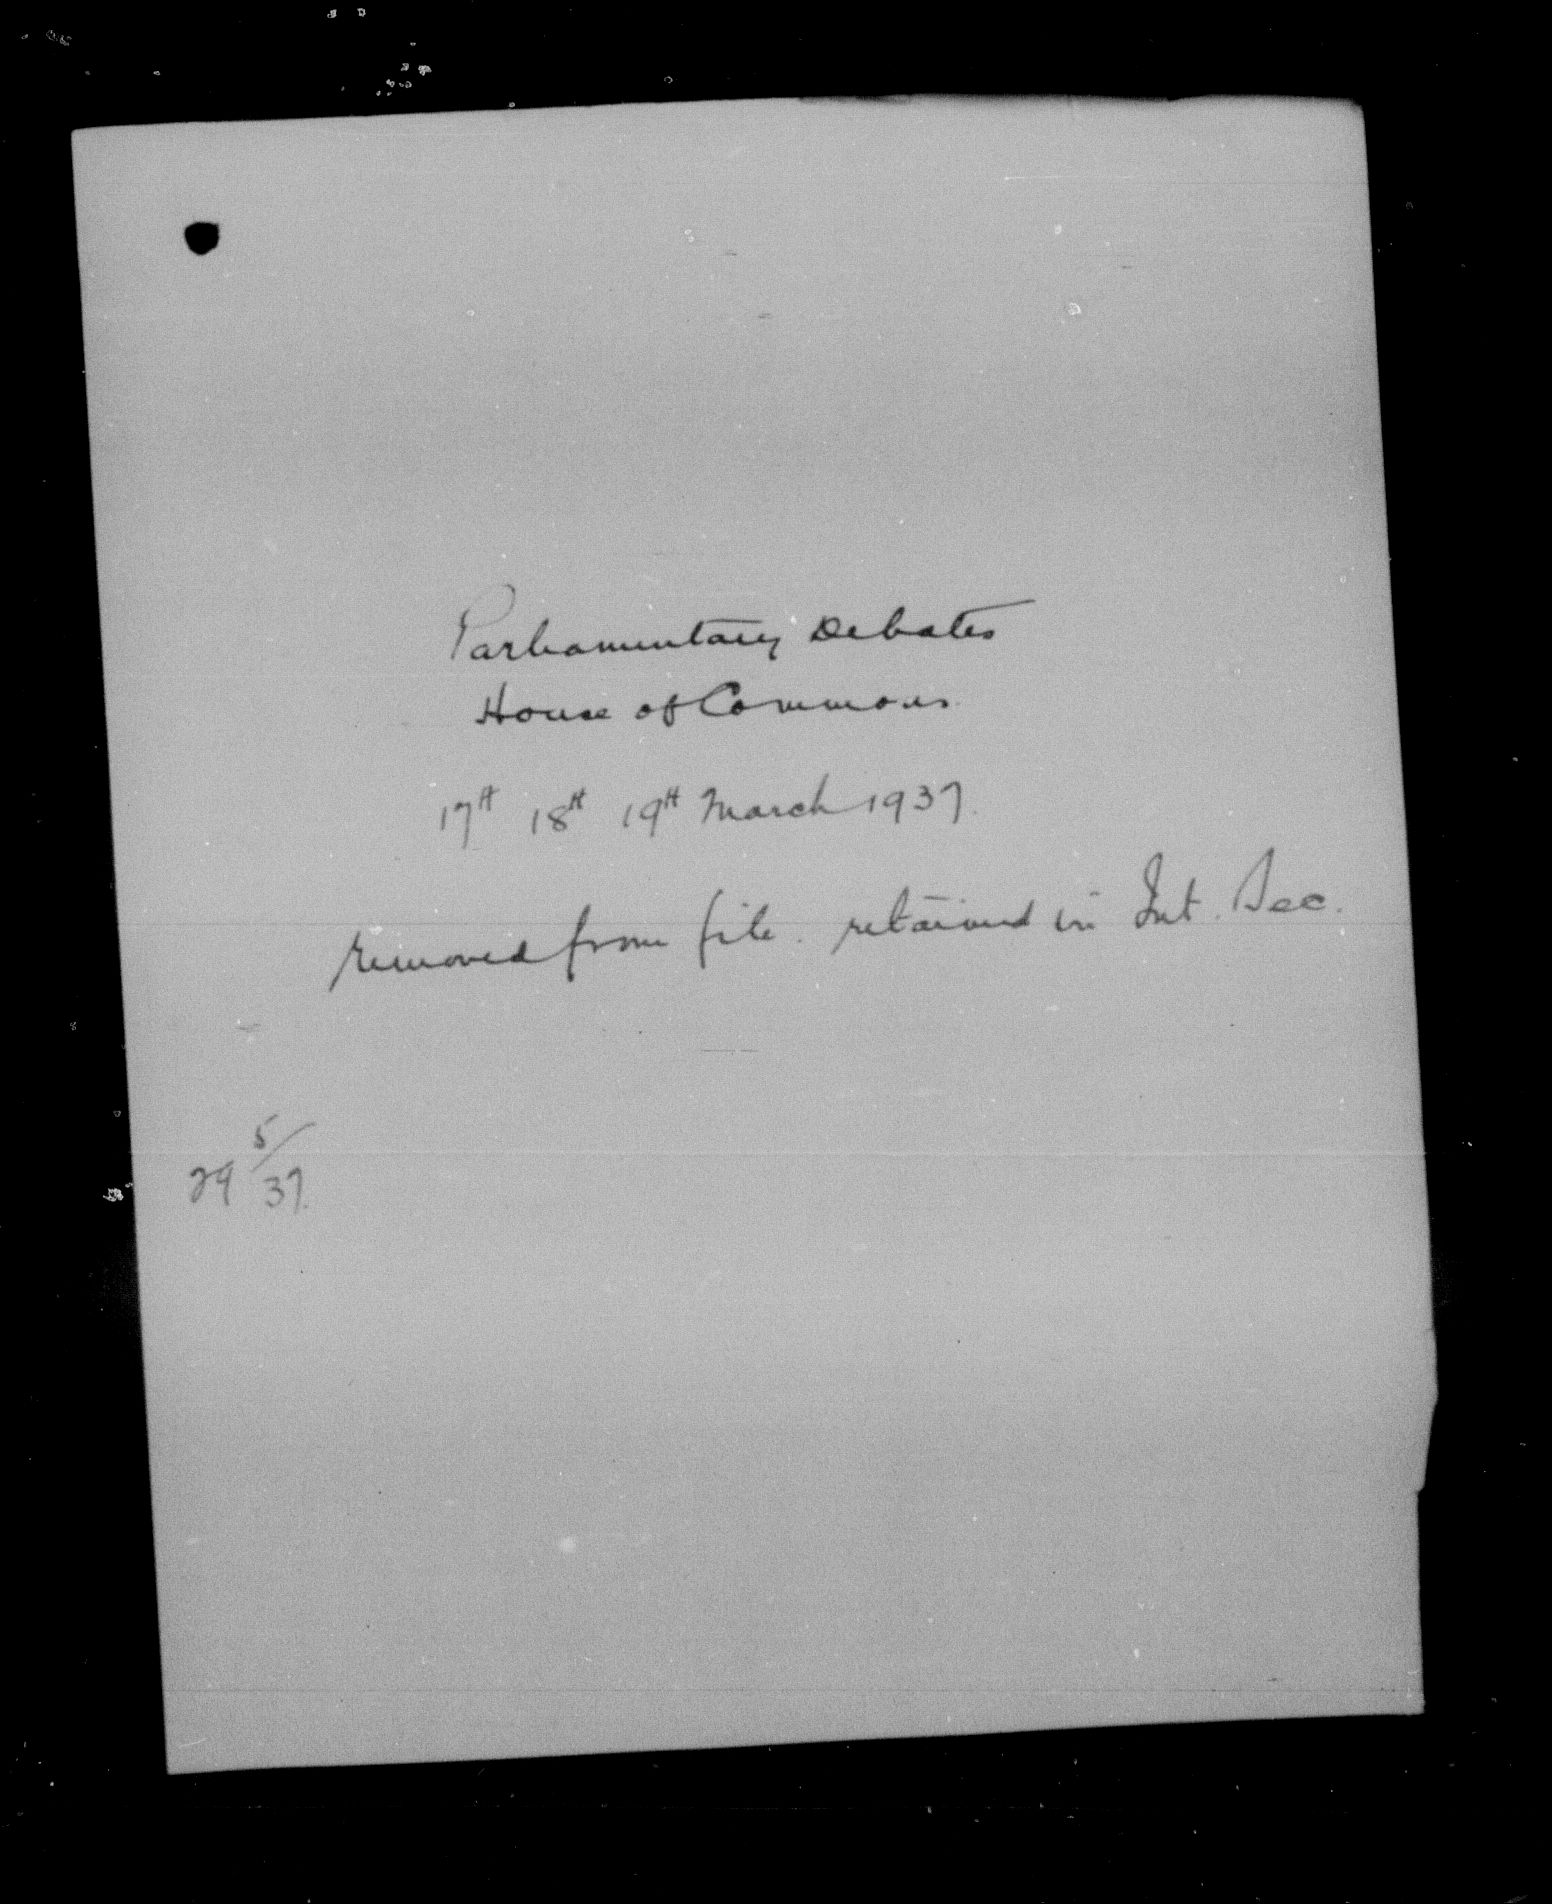 Parliamentary Debates
House of Commons.
17th 18th 19th March 1937.
removed from file. retained in Int. Sec.
29 5/37.